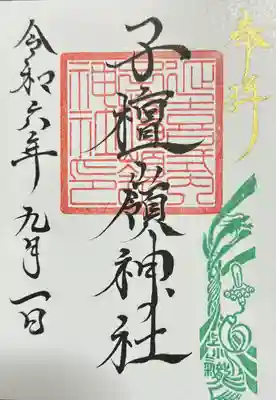 奉拝
子檀嶺神社
延喜式内
子檀嶺
神社印
令和六年 九月 一日